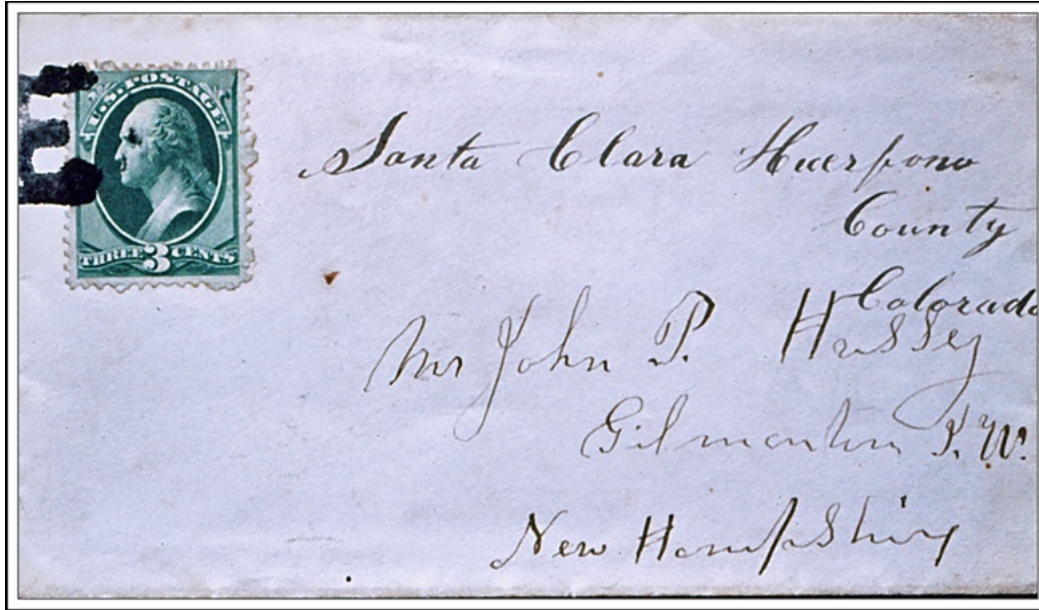 U.S. POSTAGE
THREE 3 CENTS
Santa Clara Huerfano
County
Colorado
Mr John P. Hussey
Gilmanton I. W.
New Hampshire